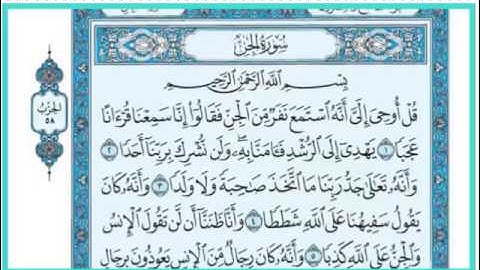 سُورَةُ الجِنِّ
بِسْمِ اللَّهِ الرَّحْمَٰنِ الرَّحِيمِ
قُلْ أُوحِيَ إِلَيَّ أَنَّهُ اسْتَمَعَ نَفَرٌ مِّنَ الْجِنِّ فَقَالُوا إِنَّا سَمِعْنَا قُرْآنًا
عَجَبًا ١ يَهْدِي إِلَى الرُّشْدِ فَآمَنَّا بِهِ وَلَن نُّشْرِكَ بِرَبِّنَا أَحَدًا ٢
وَأَنَّهُ تَعَالَىٰ جَدُّ رَبِّنَا مَا اتَّخَذَ صَاحِبَةً وَلَا وَلَدًا ٣ وَأَنَّهُ كَانَ
يَقُولُ سَفِيهُنَا عَلَى اللَّهِ شَطَطًا ٤ وَأَنَّا ظَنَنَّا أَن لَّن تَقُولَ الْإِنسُ
وَالْجِنُّ عَلَى اللَّهِ كَذِبًا ٥ وَأَنَّهُ كَانَ رِجَالٌ مِّنَ الْإِنسِ يَعُوذُونَ بِرِجَالٍ
الحِزْبُ
٥٨